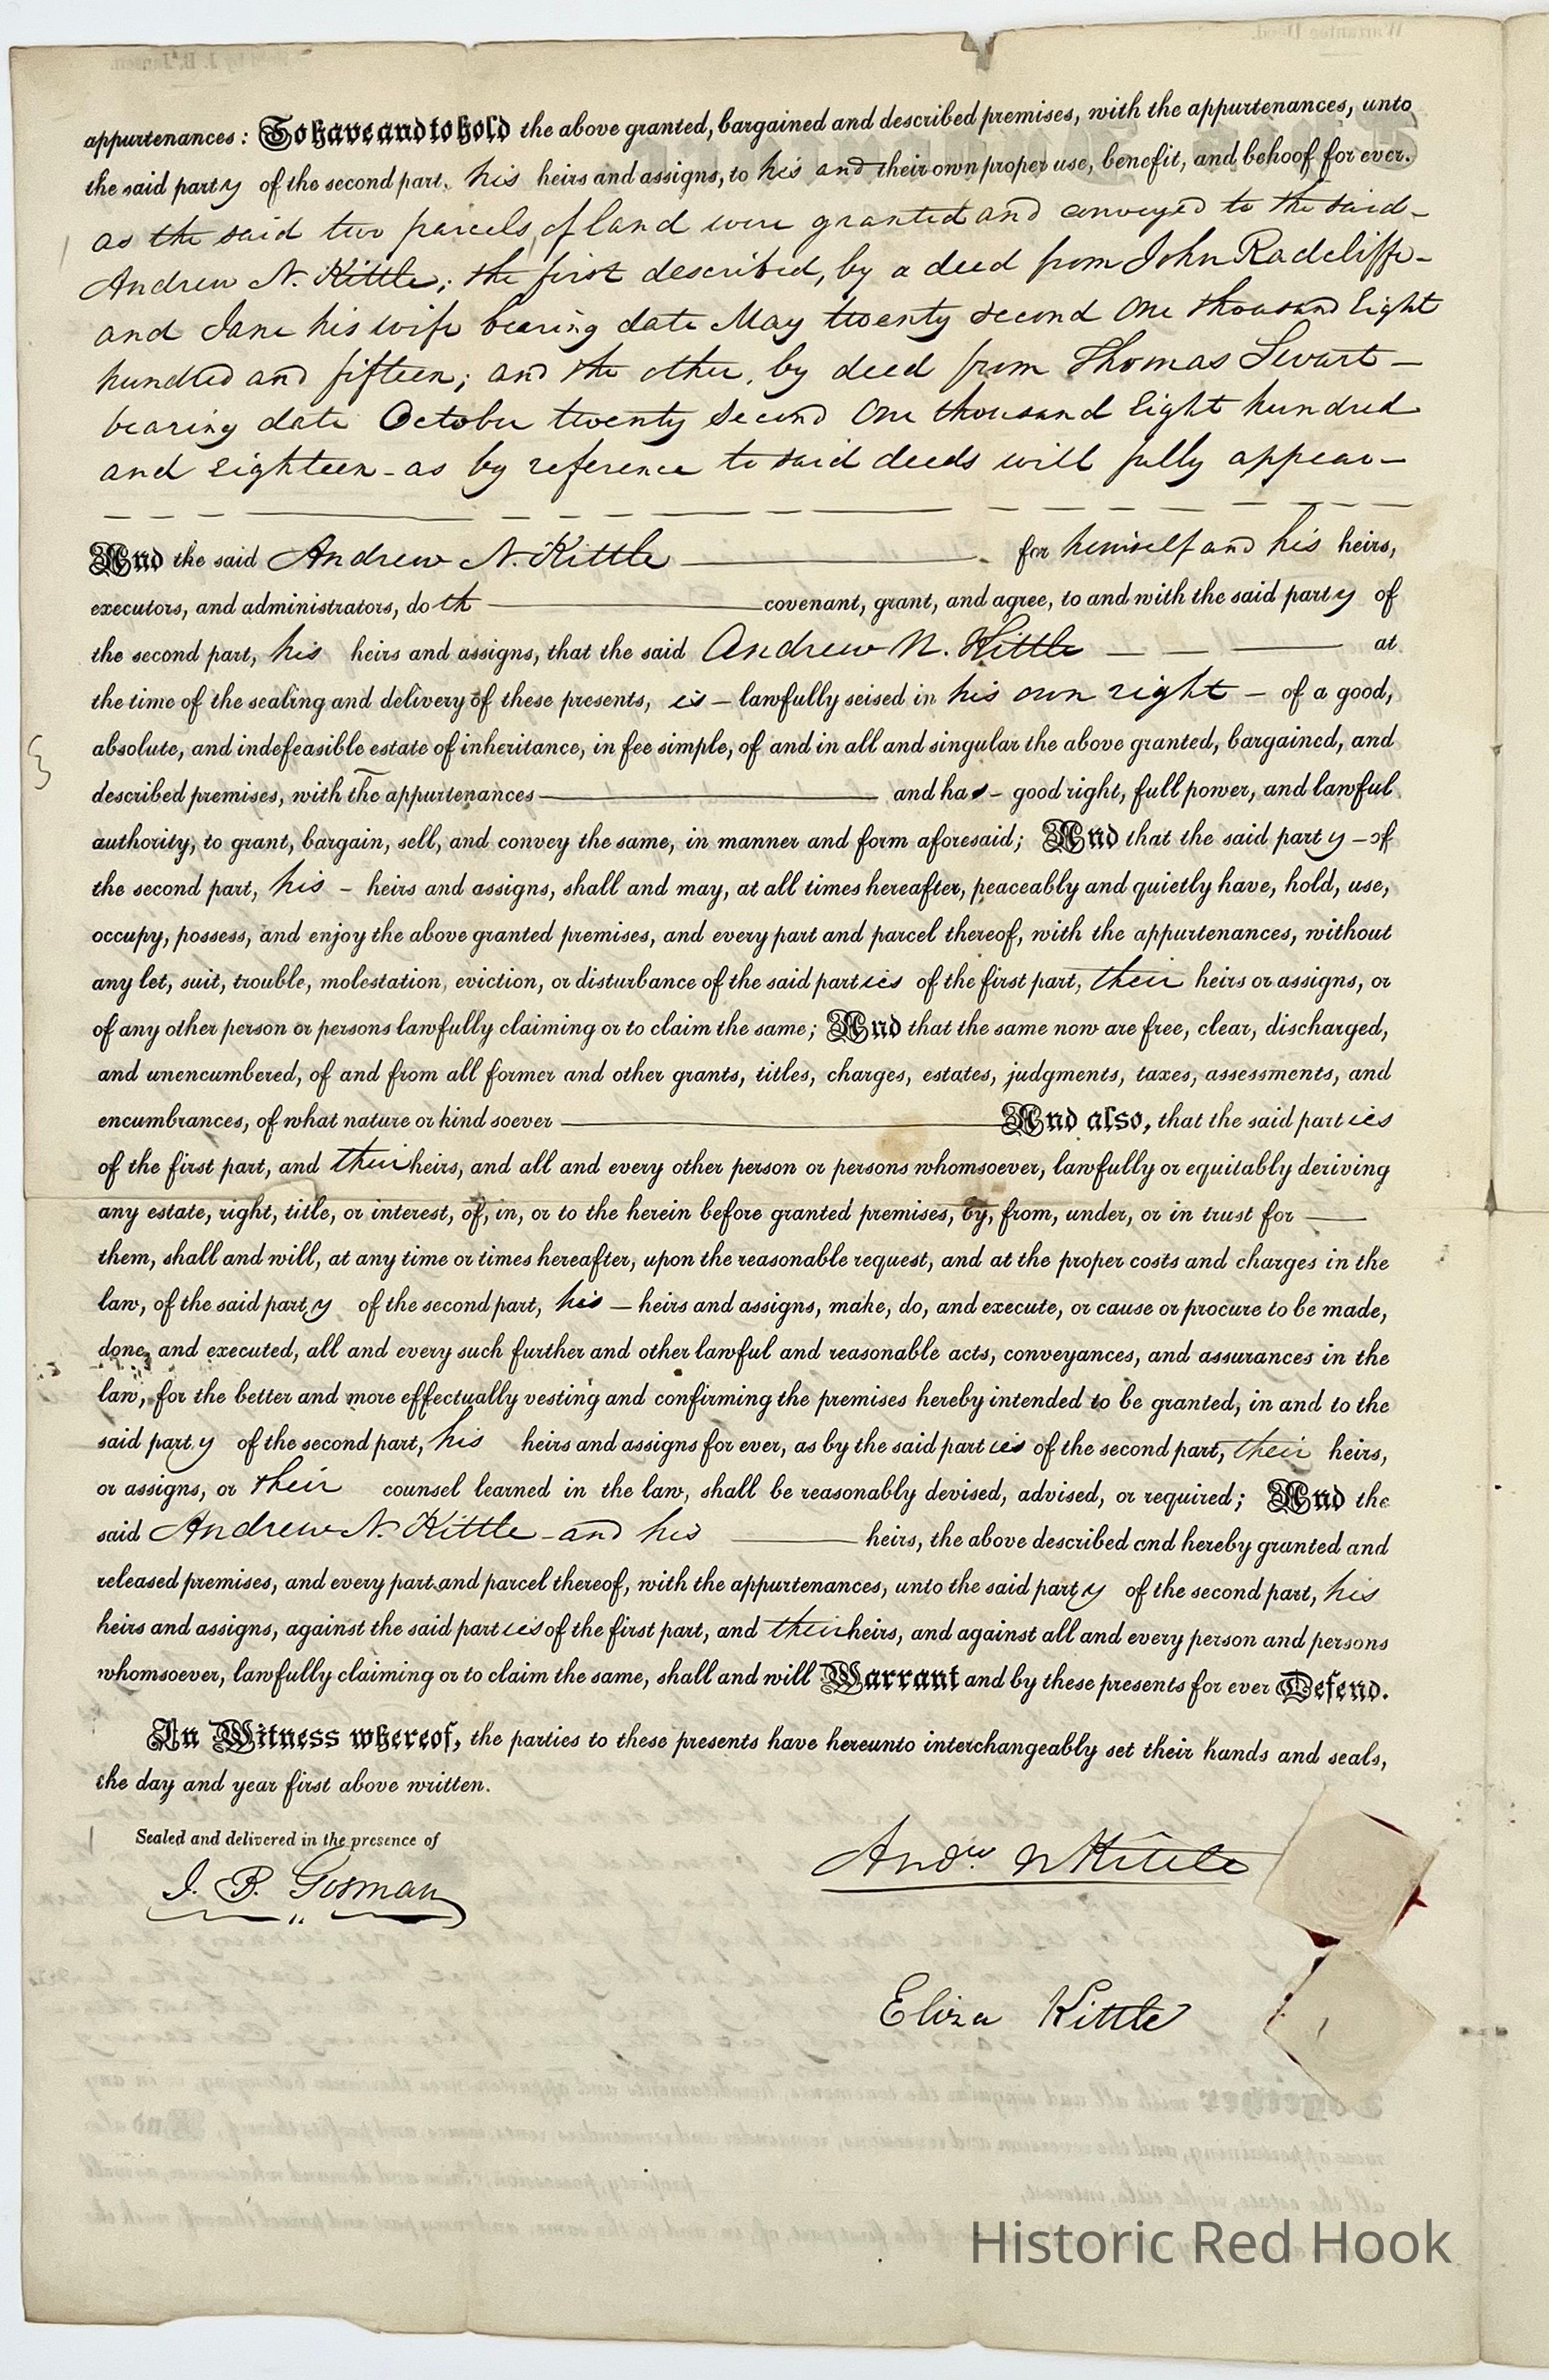 appurtenances: To have and to hold the above granted, bargained and described premises, with the appurtenances, unto
the said party of the second part, his heirs and assigns, to his and their own proper use, benefit, and behoof for ever.
as the said two parcels of land were granted and conveyed to the said -
Andrew N. Kittle; the first described, by a deed from John Radcliffe -
and Jane his wife bearing date May twenty second One thousand Eight
hundred and fifteen; and the other, by deed from Thomas Swart -
bearing date October twenty second One thousand Eight hundred
and eighteen - as by reference to said deeds will fully appear -
And the said Andrew N. Kittle for himself and his heirs,
executors, and administrators, doth covenant, grant, and agree, to and with the said party of
the second part, his heirs and assigns, that the said Andrew N. Kittle at
the time of the sealing and delivery of these presents, is - lawfully seised in his own right - of a good,
absolute, and indefeasible estate of inheritance, in fee simple, of and in all and singular the above granted, bargained, and
described premises, with the appurtenances and has - good right, full power, and lawful
authority, to grant, bargain, sell, and convey the same, in manner and form aforesaid; And that the said party - of
the second part, his - heirs and assigns, shall and may, at all times hereafter, peaceably and quietly have, hold, use,
occupy, possess, and enjoy the above granted premises, and every part and parcel thereof, with the appurtenances, without
any let, suit, trouble, molestation, eviction, or disturbance of the said parties of the first part, their heirs or assigns, or
of any other person or persons lawfully claiming or to claim the same; And that the same now are free, clear, discharged,
and unencumbered, of and from all former and other grants, titles, charges, estates, judgments, taxes, assessments, and
encumbrances, of what nature or kind soever And also, that the said parties
of the first part, and their heirs, and all and every other person or persons whomsoever, lawfully or equitably deriving
any estate, right, title, or interest, of, in, or to the herein before granted premises, by, from, under, or in trust for
them, shall and will, at any time or times hereafter, upon the reasonable request, and at the proper costs and charges in the
law, of the said party of the second part, his - heirs and assigns, make, do, and execute, or cause or procure to be made,
done, and executed, all and every such further and other lawful and reasonable acts, conveyances, and assurances in the
law, for the better and more effectually vesting and confirming the premises hereby intended to be granted, in and to the
said party of the second part, his heirs and assigns for ever, as by the said parties of the second part, their heirs,
or assigns, or their counsel learned in the law, shall be reasonably devised, advised, or required; And the
said Andrew N. Kittle - and his heirs, the above described and hereby granted and
released premises, and every part and parcel thereof, with the appurtenances, unto the said party of the second part, his
heirs and assigns, against the said parties of the first part, and their heirs, and against all and every person and persons
whomsoever, lawfully claiming or to claim the same, shall and will Warrant and by these presents for ever Defend.
In Witness whereof, the parties to these presents have hereunto interchangeably set their hands and seals,
the day and year first above written.
Sealed and delivered in the presence of
J. B. Gosman
Andw. N Kittle
Eliza Kittle
Historic Red Hook